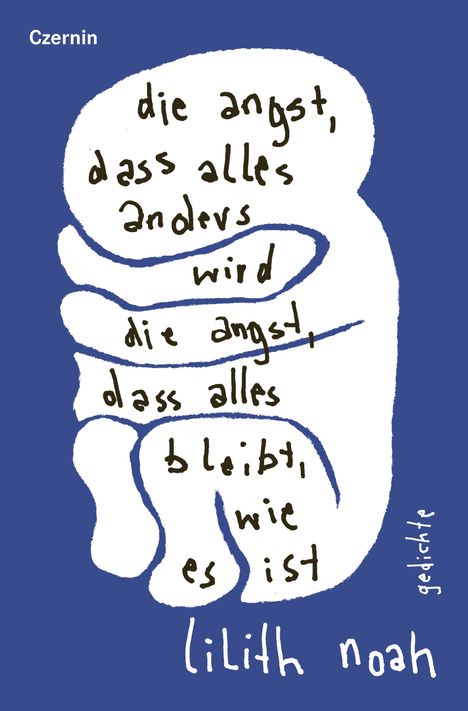 Czernin
die angst,
dass alles
anders
wird
die angst,
dass alles
bleibt,
wie
es ist
gedichte
lilith noah